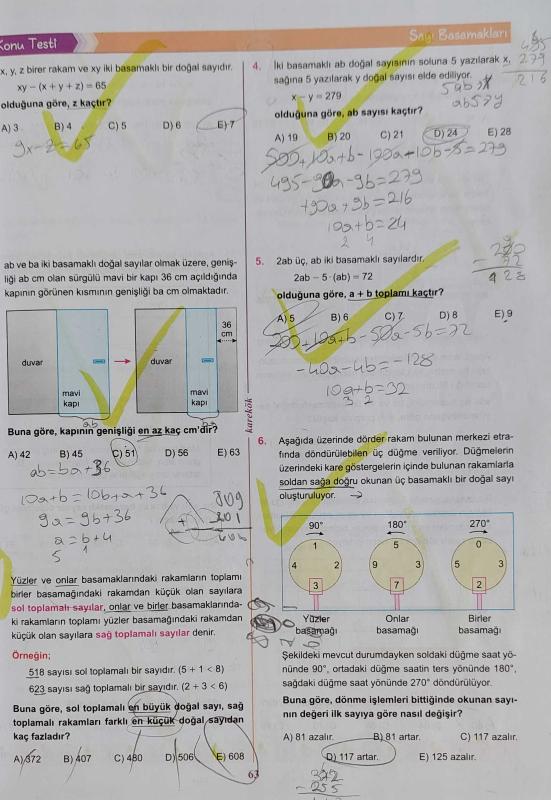 Konu Testi
Sayı Basamakları
x, y, z birer rakam ve xy iki basamaklı bir doğal sayıdır.
xy – (x + y + z) = 65
olduğuna göre, z kaçtır?
A) 3 B) 4 C) 5 D) 6 E) 7
9x-z=65
ab ve ba iki basamaklı doğal sayılar olmak üzere, geniş-
liği ab cm olan sürgülü mavi bir kapı 36 cm açıldığında
kapının görünen kısmının genişliği ba cm olmaktadır.
36
cm
duvar
duvar
mavi
kapı
mavi
kapı
ab
ba
Buna göre, kapının genişliği en az kaç cm'dir?
A) 42 B) 45 C) 51 D) 56 E) 63
ab=ba+36
10a+b=10b+a+36
9a=9b+36
a=b+4
5 1
Yüzler ve onlar basamaklarındaki rakamların toplamı
birler basamağındaki rakamdan küçük olan sayılara
sol toplamalı sayılar, onlar ve birler basamaklarında-
ki rakamların toplamı yüzler basamağındaki rakamdan
küçük olan sayılara sağ toplamalı sayılar denir.
Örneğin;
518 sayısı sol toplamalı bir sayıdır. (5 + 1 < 8)
623 sayısı sağ toplamalı bir sayıdır. (2 + 3 < 6)
Buna göre, sol toplamalı en büyük doğal sayı, sağ
toplamalı rakamları farklı en küçük doğal sayıdan
kaç fazladır?
A) 372 B) 407 C) 480 D) 506 E) 608
63
karekök
4. İki basamaklı ab doğal sayısının soluna 5 yazılarak x,
sağına 5 yazılarak y doğal sayısı elde ediliyor.
x – y = 279
olduğuna göre, ab sayısı kaçtır?
A) 19 B) 20 C) 21 D) 24 E) 28
495
279
216
495-90a-9b=279
+90a+9b=216
10a+b=24
2 4
5. 2ab üç, ab iki basamaklı sayılardır.
2ab – 5·(ab) = 72
olduğuna göre, a + b toplamı kaçtır?
A) 5 B) 6 C) 7 D) 8 E) 9
200+10a+b-50a-5b=72
-40a-4b=-128
10a+b=32
3 2
6. Aşağıda üzerinde dörder rakam bulunan merkezi etra-
fında döndürülebilen üç düğme veriliyor. Düğmelerin
üzerindeki kare göstergelerin içinde bulunan rakamlarla
soldan sağa doğru okunan üç basamaklı bir doğal sayı
oluşturuluyor.
90° 180° 270°
1 5 0
4 2 9 3 5 3
3 7 2
Yüzler Onlar Birler
basamağı basamağı basamağı
Şekildeki mevcut durumdayken soldaki düğme saat yö-
nünde 90°, ortadaki düğme saatin ters yönünde 180°,
sağdaki düğme saat yönünde 270° döndürülüyor.
Buna göre, dönme işlemleri bittiğinde okunan sayı-
nın değeri ilk sayıya göre nasıl değişir?
A) 81 azalır. B) 81 artar. C) 117 azalır.
D) 117 artar. E) 125 azalır.
372
- 255